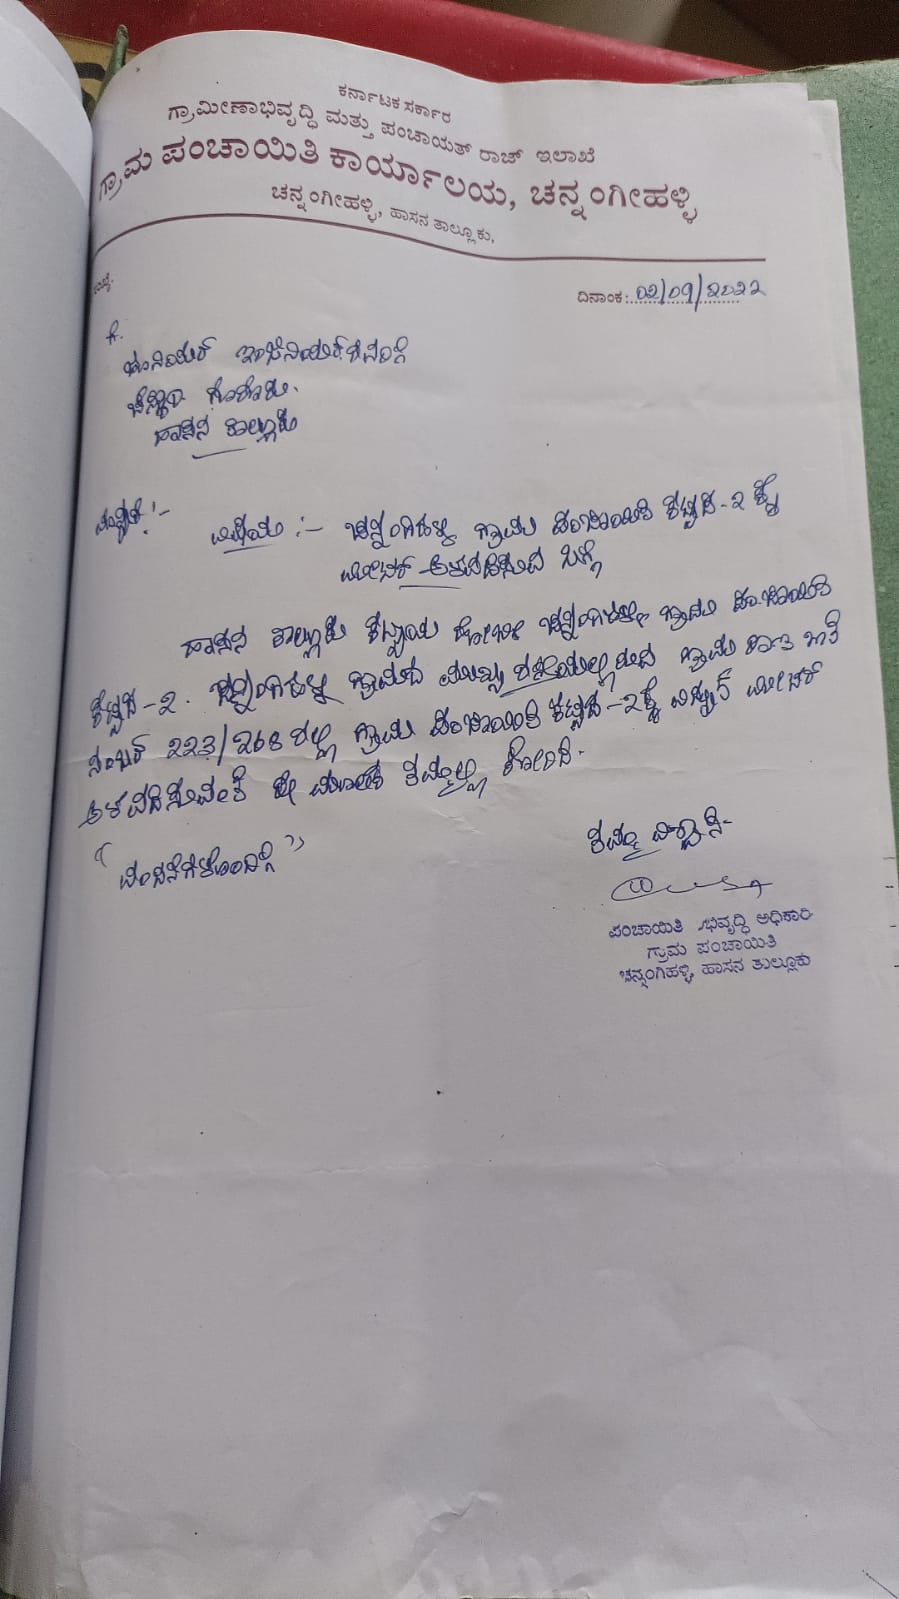 ಕರ್ನಾಟಕ ಸರ್ಕಾರ
ಗ್ರಾಮೀಣಾಭಿವೃದ್ಧಿ ಮತ್ತು ಪಂಚಾಯತ್ ರಾಜ್ ಇಲಾಖೆ
ಗ್ರಾಮ ಪಂಚಾಯಿತಿ ಕಾರ್ಯಾಲಯ, ಚನ್ನಂಗೀಹಳ್ಳಿ
ಚನ್ನಂಗೀಹಳ್ಳಿ, ಹಾಸನ ತಾಲ್ಲೂಕು,
ದಿನಾಂಕ: 02/09/೨೦೨೨
ಜೂನಿಯರ್ ಇಂಜಿನಿಯರ್ ರವರಿಗೆ
ಚೆಸ್ಕಾಂ ಗೊರೂರು.
ಹಾಸನ ತಾಲ್ಲೂಕು
ಮಾನ್ಯರೆ :-
ವಿಷಯ :- ಚನ್ನಂಗಿಹಳ್ಳಿ ಗ್ರಾಮ ಪಂಚಾಯಿತಿ ಕಟ್ಟಡ-೨ ಕ್ಕೆ
ಮೀಟರ್ ಅಳವಡಿಸುವ ಬಗ್ಗೆ
ಹಾಸನ ತಾಲ್ಲೂಕು ಕಟ್ಟಾಯ ಹೋಬಳಿ ಚನ್ನಂಗಿಹಳ್ಳಿ ಗ್ರಾಮ ಪಂಚಾಯಿತಿ
ಕಟ್ಟಡ-೨. ಚನ್ನಂಗಿಹಳ್ಳಿ ಗ್ರಾಮದ ಮುಖ್ಯ ರಸ್ತೆಯಲ್ಲಿರುವ ಗ್ರಾಮ ಖಾತೆ
ನಂಬರ್ 223/268 ರಲ್ಲಿ ಗ್ರಾಮ ಪಂಚಾಯಿತಿ ಕಟ್ಟಡ-೨ಕ್ಕೆ ವಿದ್ಯುತ್ ಮೀಟರ್
ಅಳವಡಿಸುವಂತೆ ಈ ಮೂಲಕ ತಮ್ಮಲ್ಲಿ ಕೋರಿದೆ.
"ವಂದನೆಗಳೊಂದಿಗೆ"
ತಮ್ಮ ವಿಶ್ವಾಸಿ-
ಪಂಚಾಯಿತಿ ಅಭಿವೃದ್ಧಿ ಅಧಿಕಾರಿ
ಗ್ರಾಮ ಪಂಚಾಯಿತಿ
ಚನ್ನಂಗಿಹಳ್ಳಿ, ಹಾಸನ ತಾಲ್ಲೂಕು